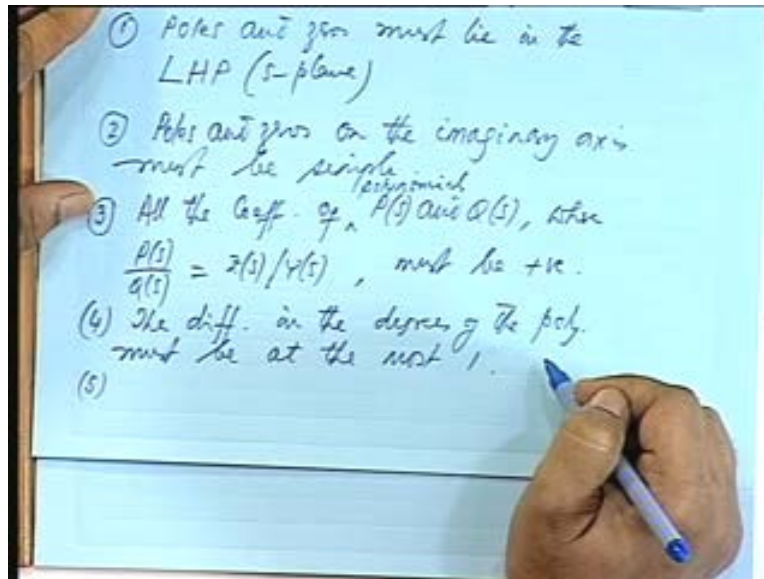 ① Poles and zeros must lie in the
LHP (s-plane)
② Poles and zeros on the imaginary axis
must be simple
polynomials
③ All the Coeff. of ^ P(s) and Q(s), where
P(s)/Q(s) = Z(s)/Y(s), must be +ve.
(4) The diff. in the degrees of the poly.
must be at the most 1.
(5)